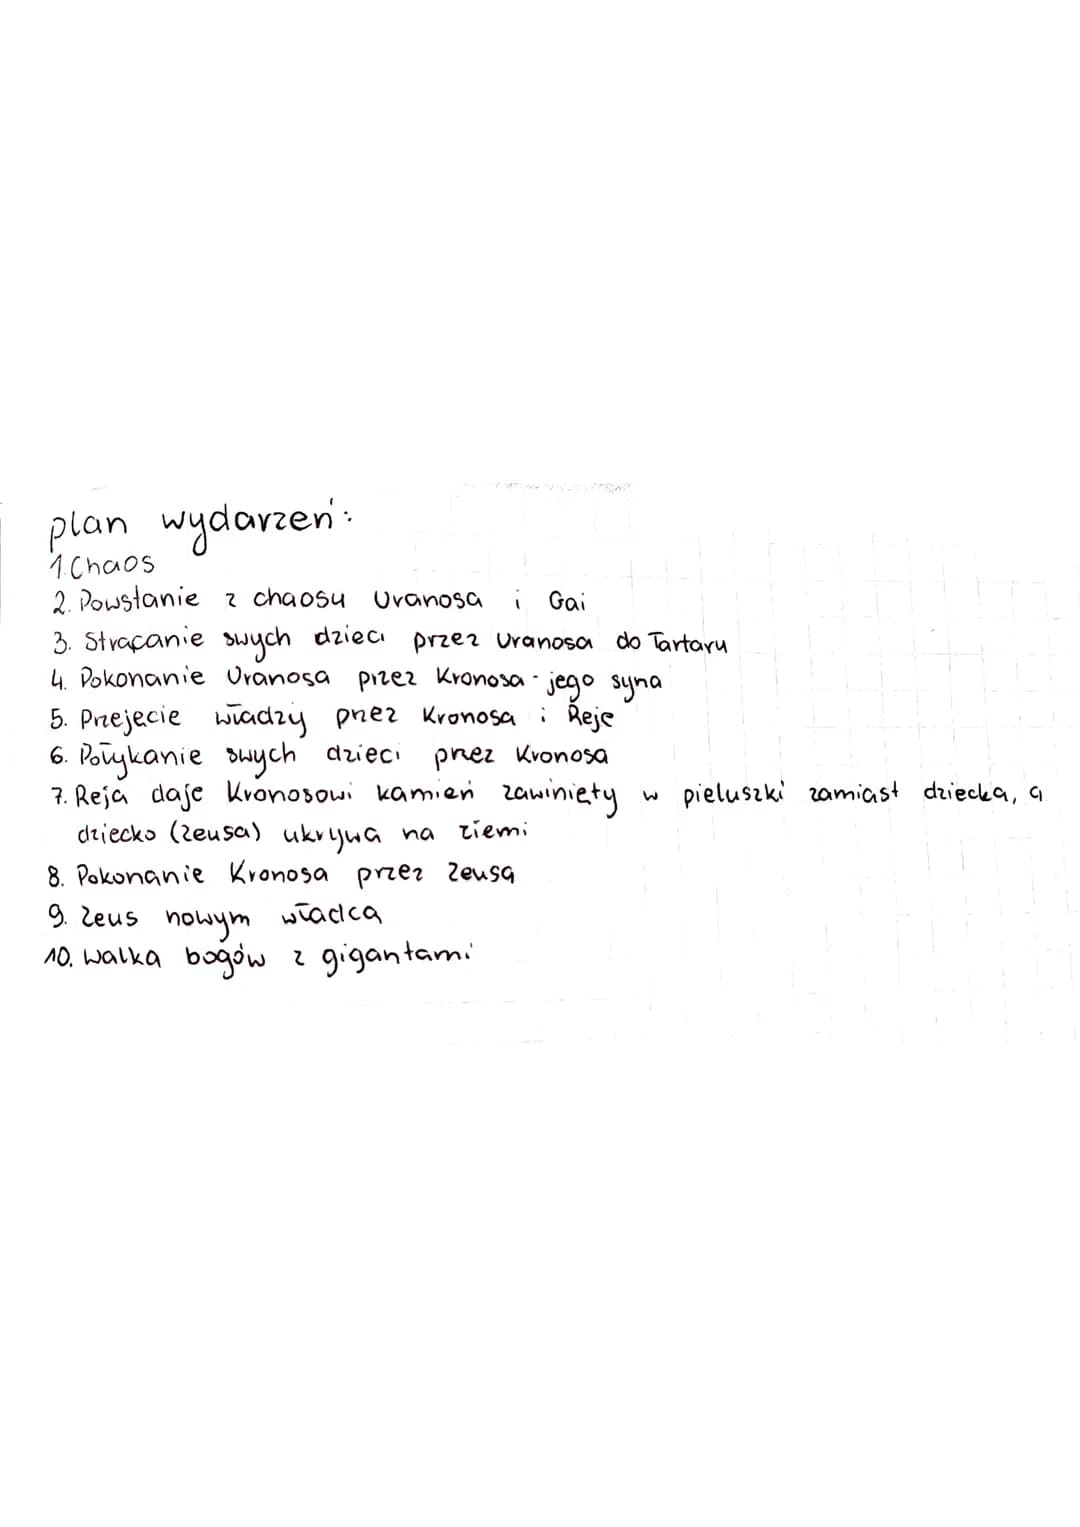 plan wydarzeń:
1. Chaos
2. Powstanie z chaosu Uranosa i Gai
3. Strącanie swych dzieci przez Uranosa do Tartaru
4. Pokonanie Uranosa przez Kronosa - jego syna
5. Przejęcie władzy przez Kronosa i Reję
6. Połykanie swych dzieci przez Kronosa
7. Reja daje Kronosowi kamień zawinięty w pieluszki zamiast dziecka, a
dziecko (Zeusa) ukrywa na ziemi
8. Pokonanie Kronosa przez Zeusa
9. Zeus nowym władcą
10. Walka bogów z gigantami